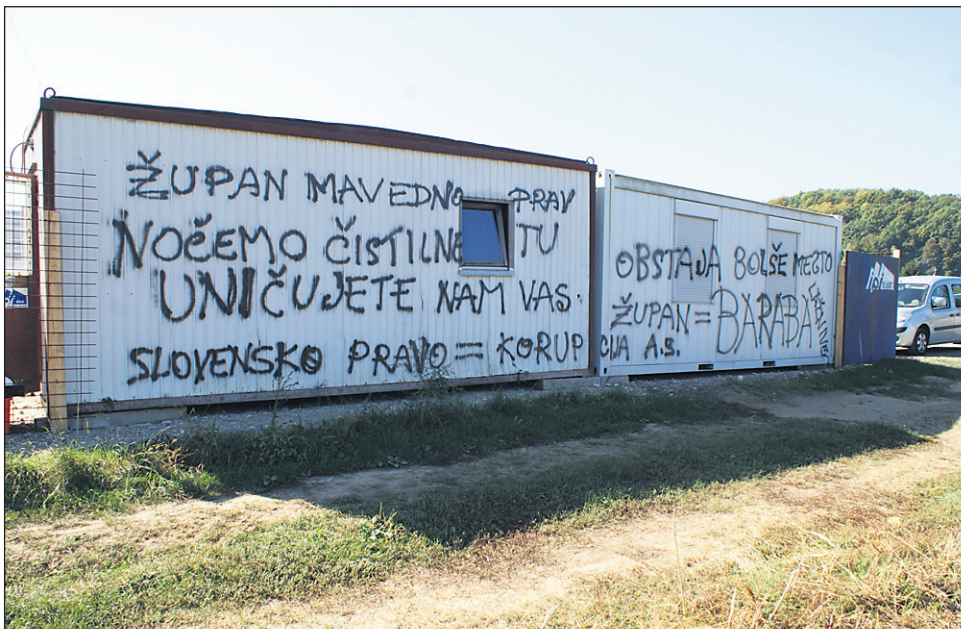 ŽUPAN MA VEDNO PRAV
NOČEMO ČISTILNE TU
UNIČUJETE NAM VAS
SLOVENSKO PRAVO = KORUP
OBSTAJA BOLŠE MESTO
ŽUPAN = BARABA
CIJA A.B.
ipi